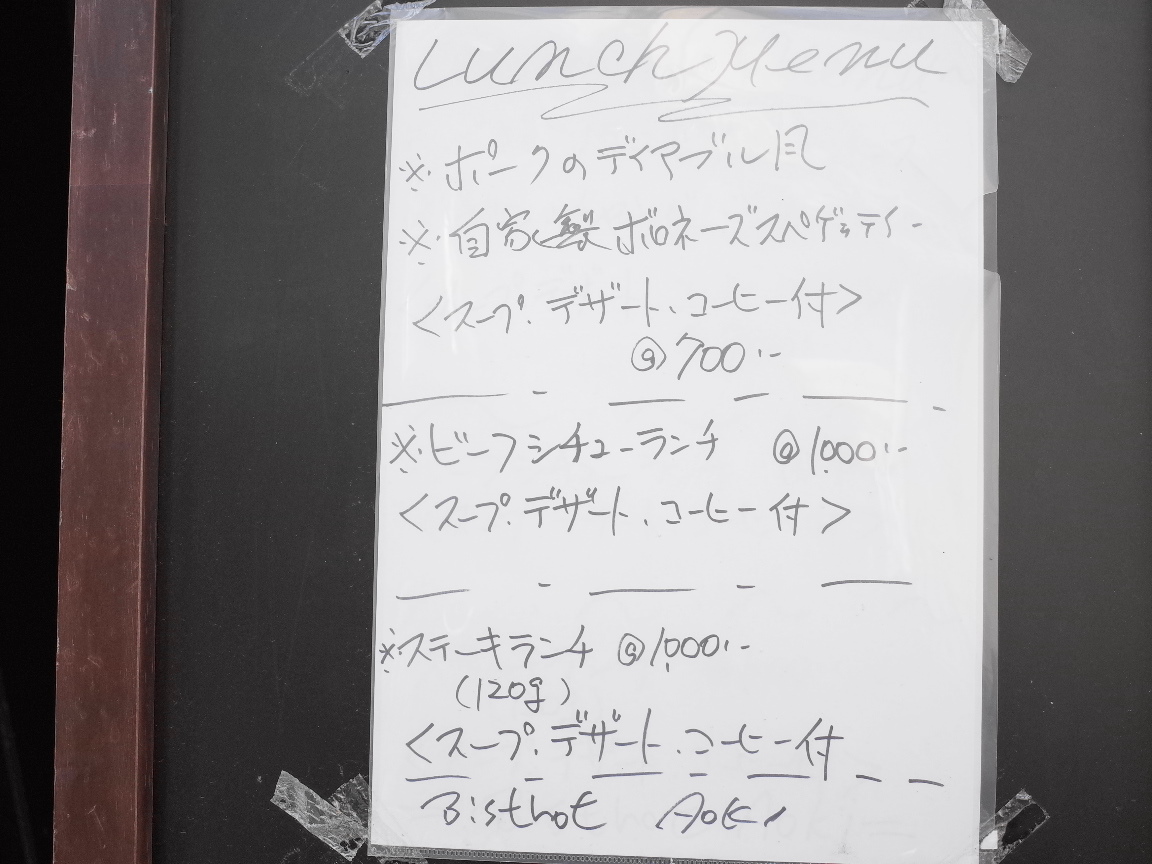 Lunch Menu
※ポークのディアブル風
※自家製ボロネーズスパゲッティー
<スープ、デザート、コーヒー付>
@700.-
※ビーフシチューランチ @1,000.-
<スープ、デザート、コーヒー付>
※ステーキランチ @1,000.-
(120g)
<スープ、デザート、コーヒー付
Bistrot Aoki